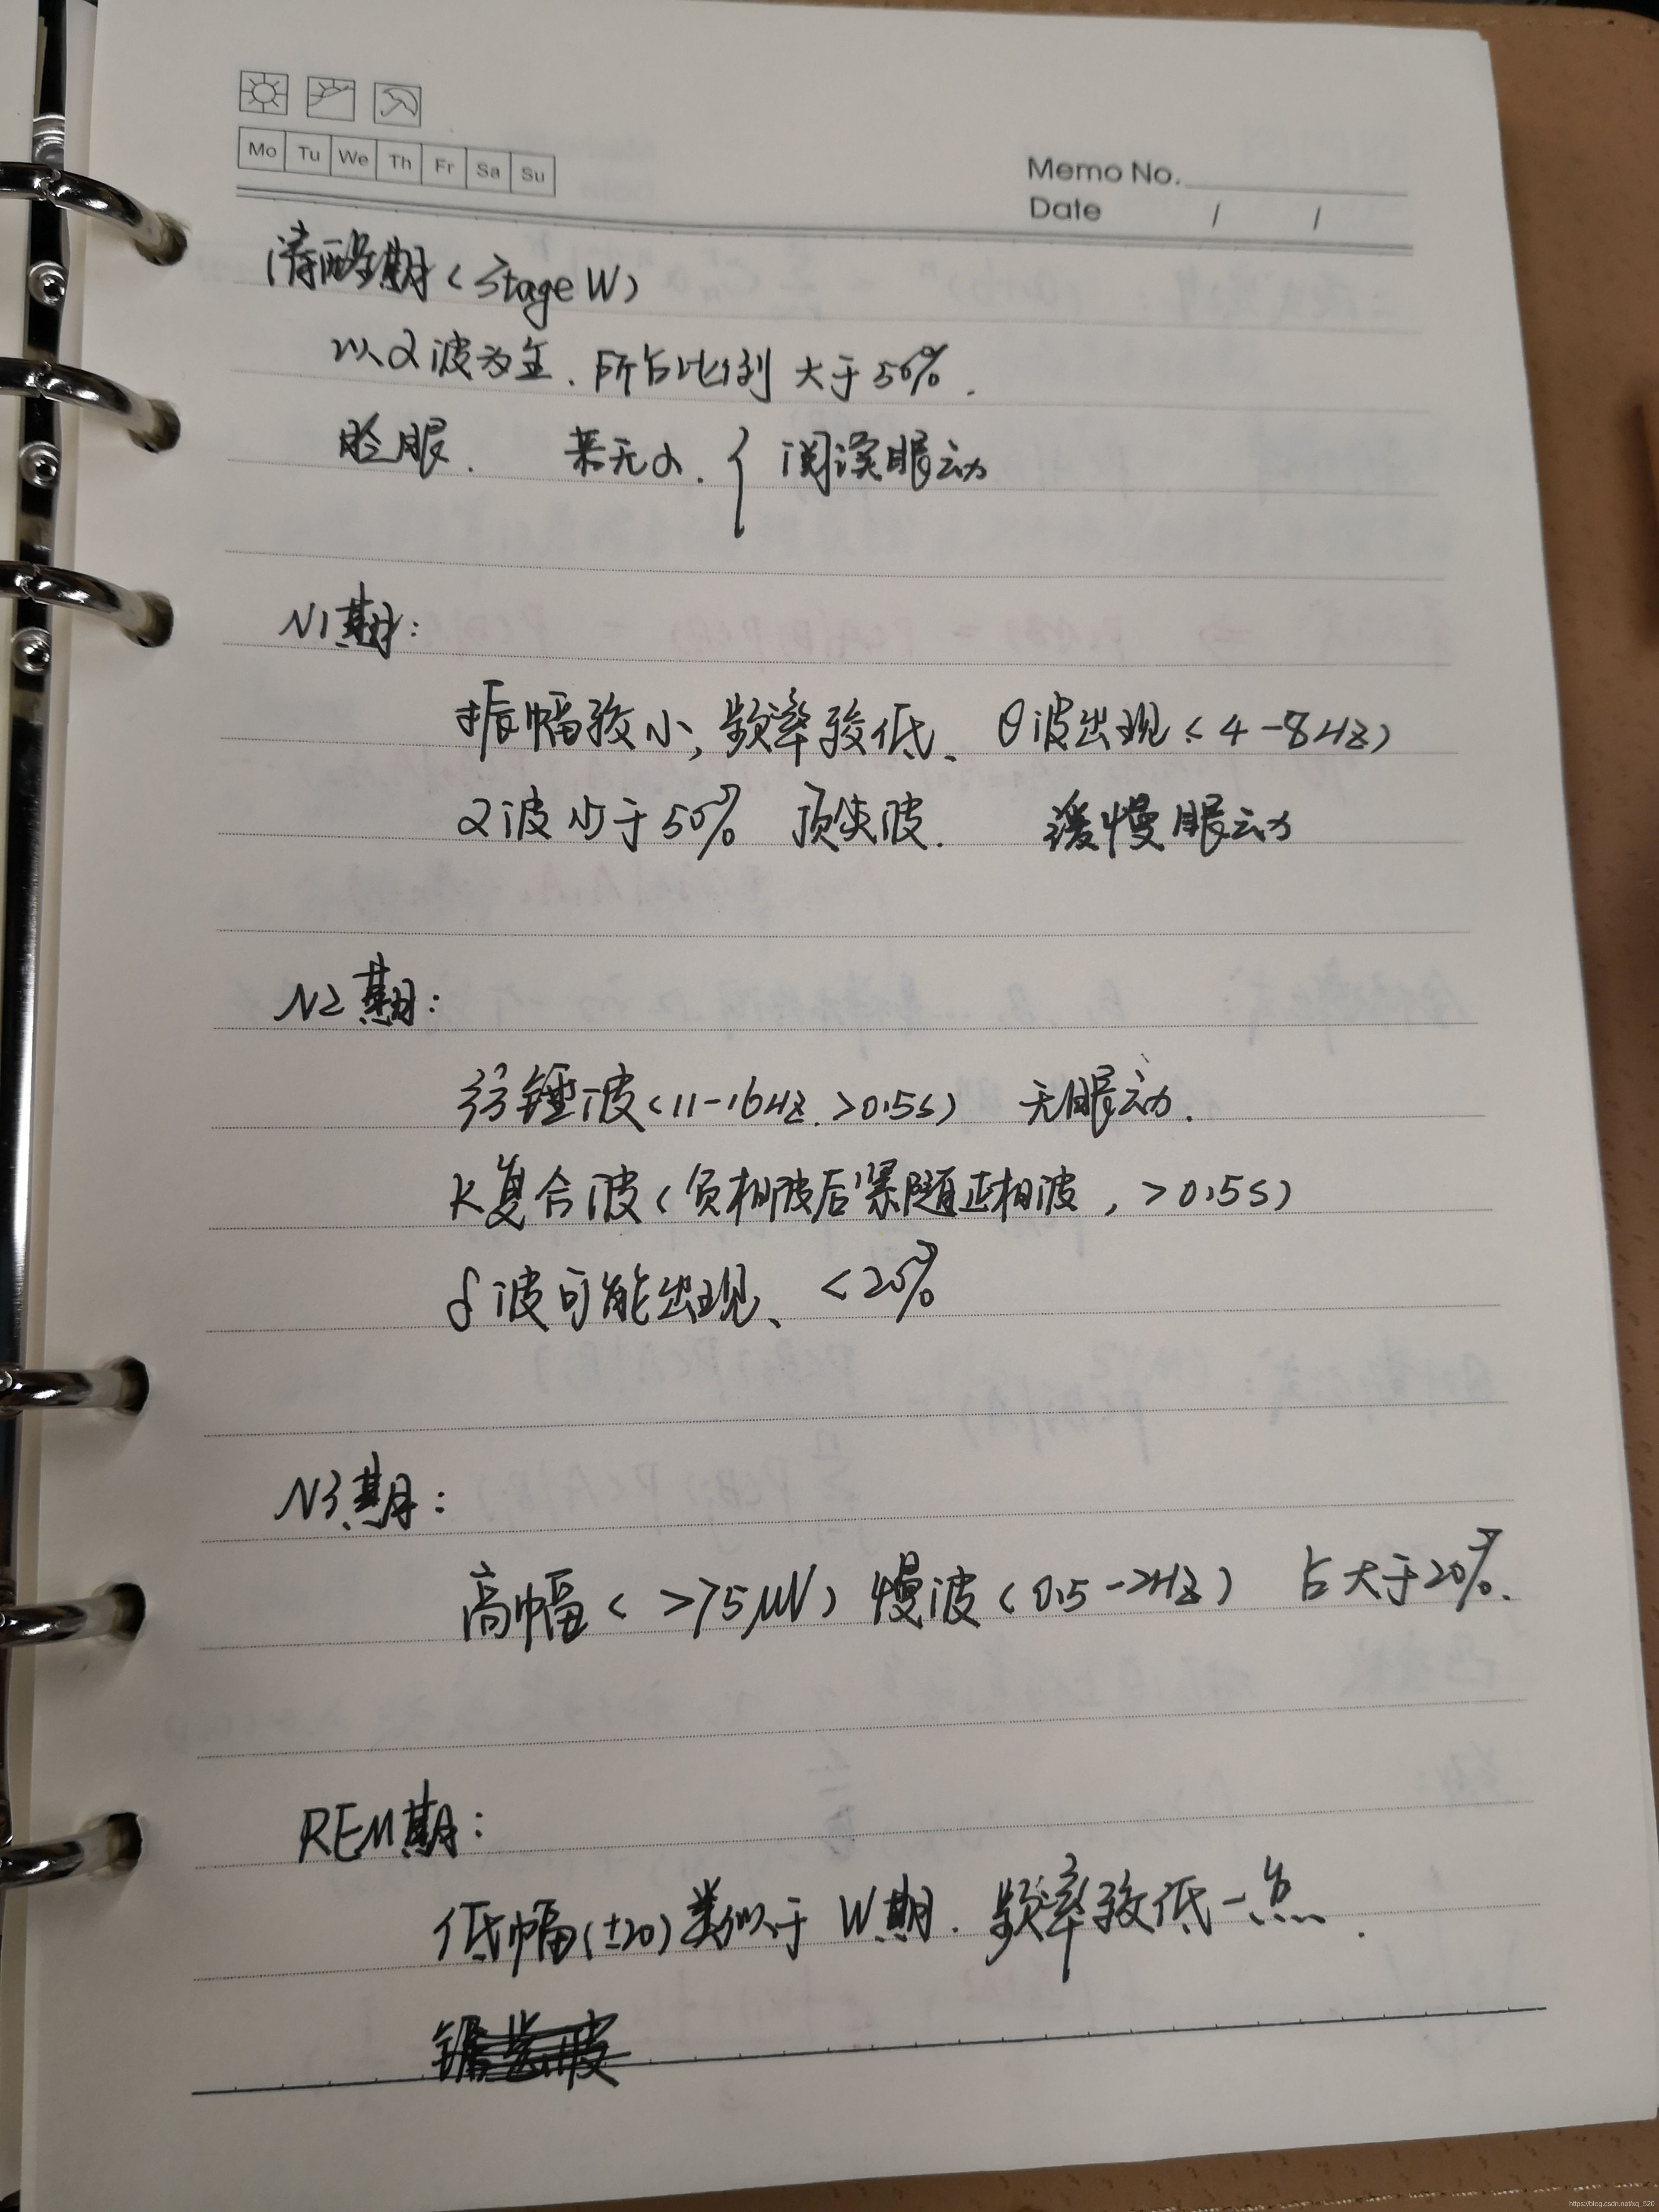 Mo Tu We Th Fr Sa Su
Memo No.
Date / /
清醒期(Stage W)
以α波为主、所占比例大于50%.
睑眼. 若无α. { 阅读眼动
N1期:
振幅较小,频率较低、θ波出现(4-8Hz)
α波少于50% 顶尖波. 缓慢眼动
N2期:
纺锤波(11-16Hz.>0.5s) 无眼动.
K复合波(负相波后紧随正相波,>0.5s)
δ波可能出现、<20%
N3期:
高幅(>75μV)慢波(0.5-2Hz) 占大于20%.
REM期:
低幅(±20)类似于W期.频率较低一点.
锯齿波
https://blog.csdn.net/xq_520